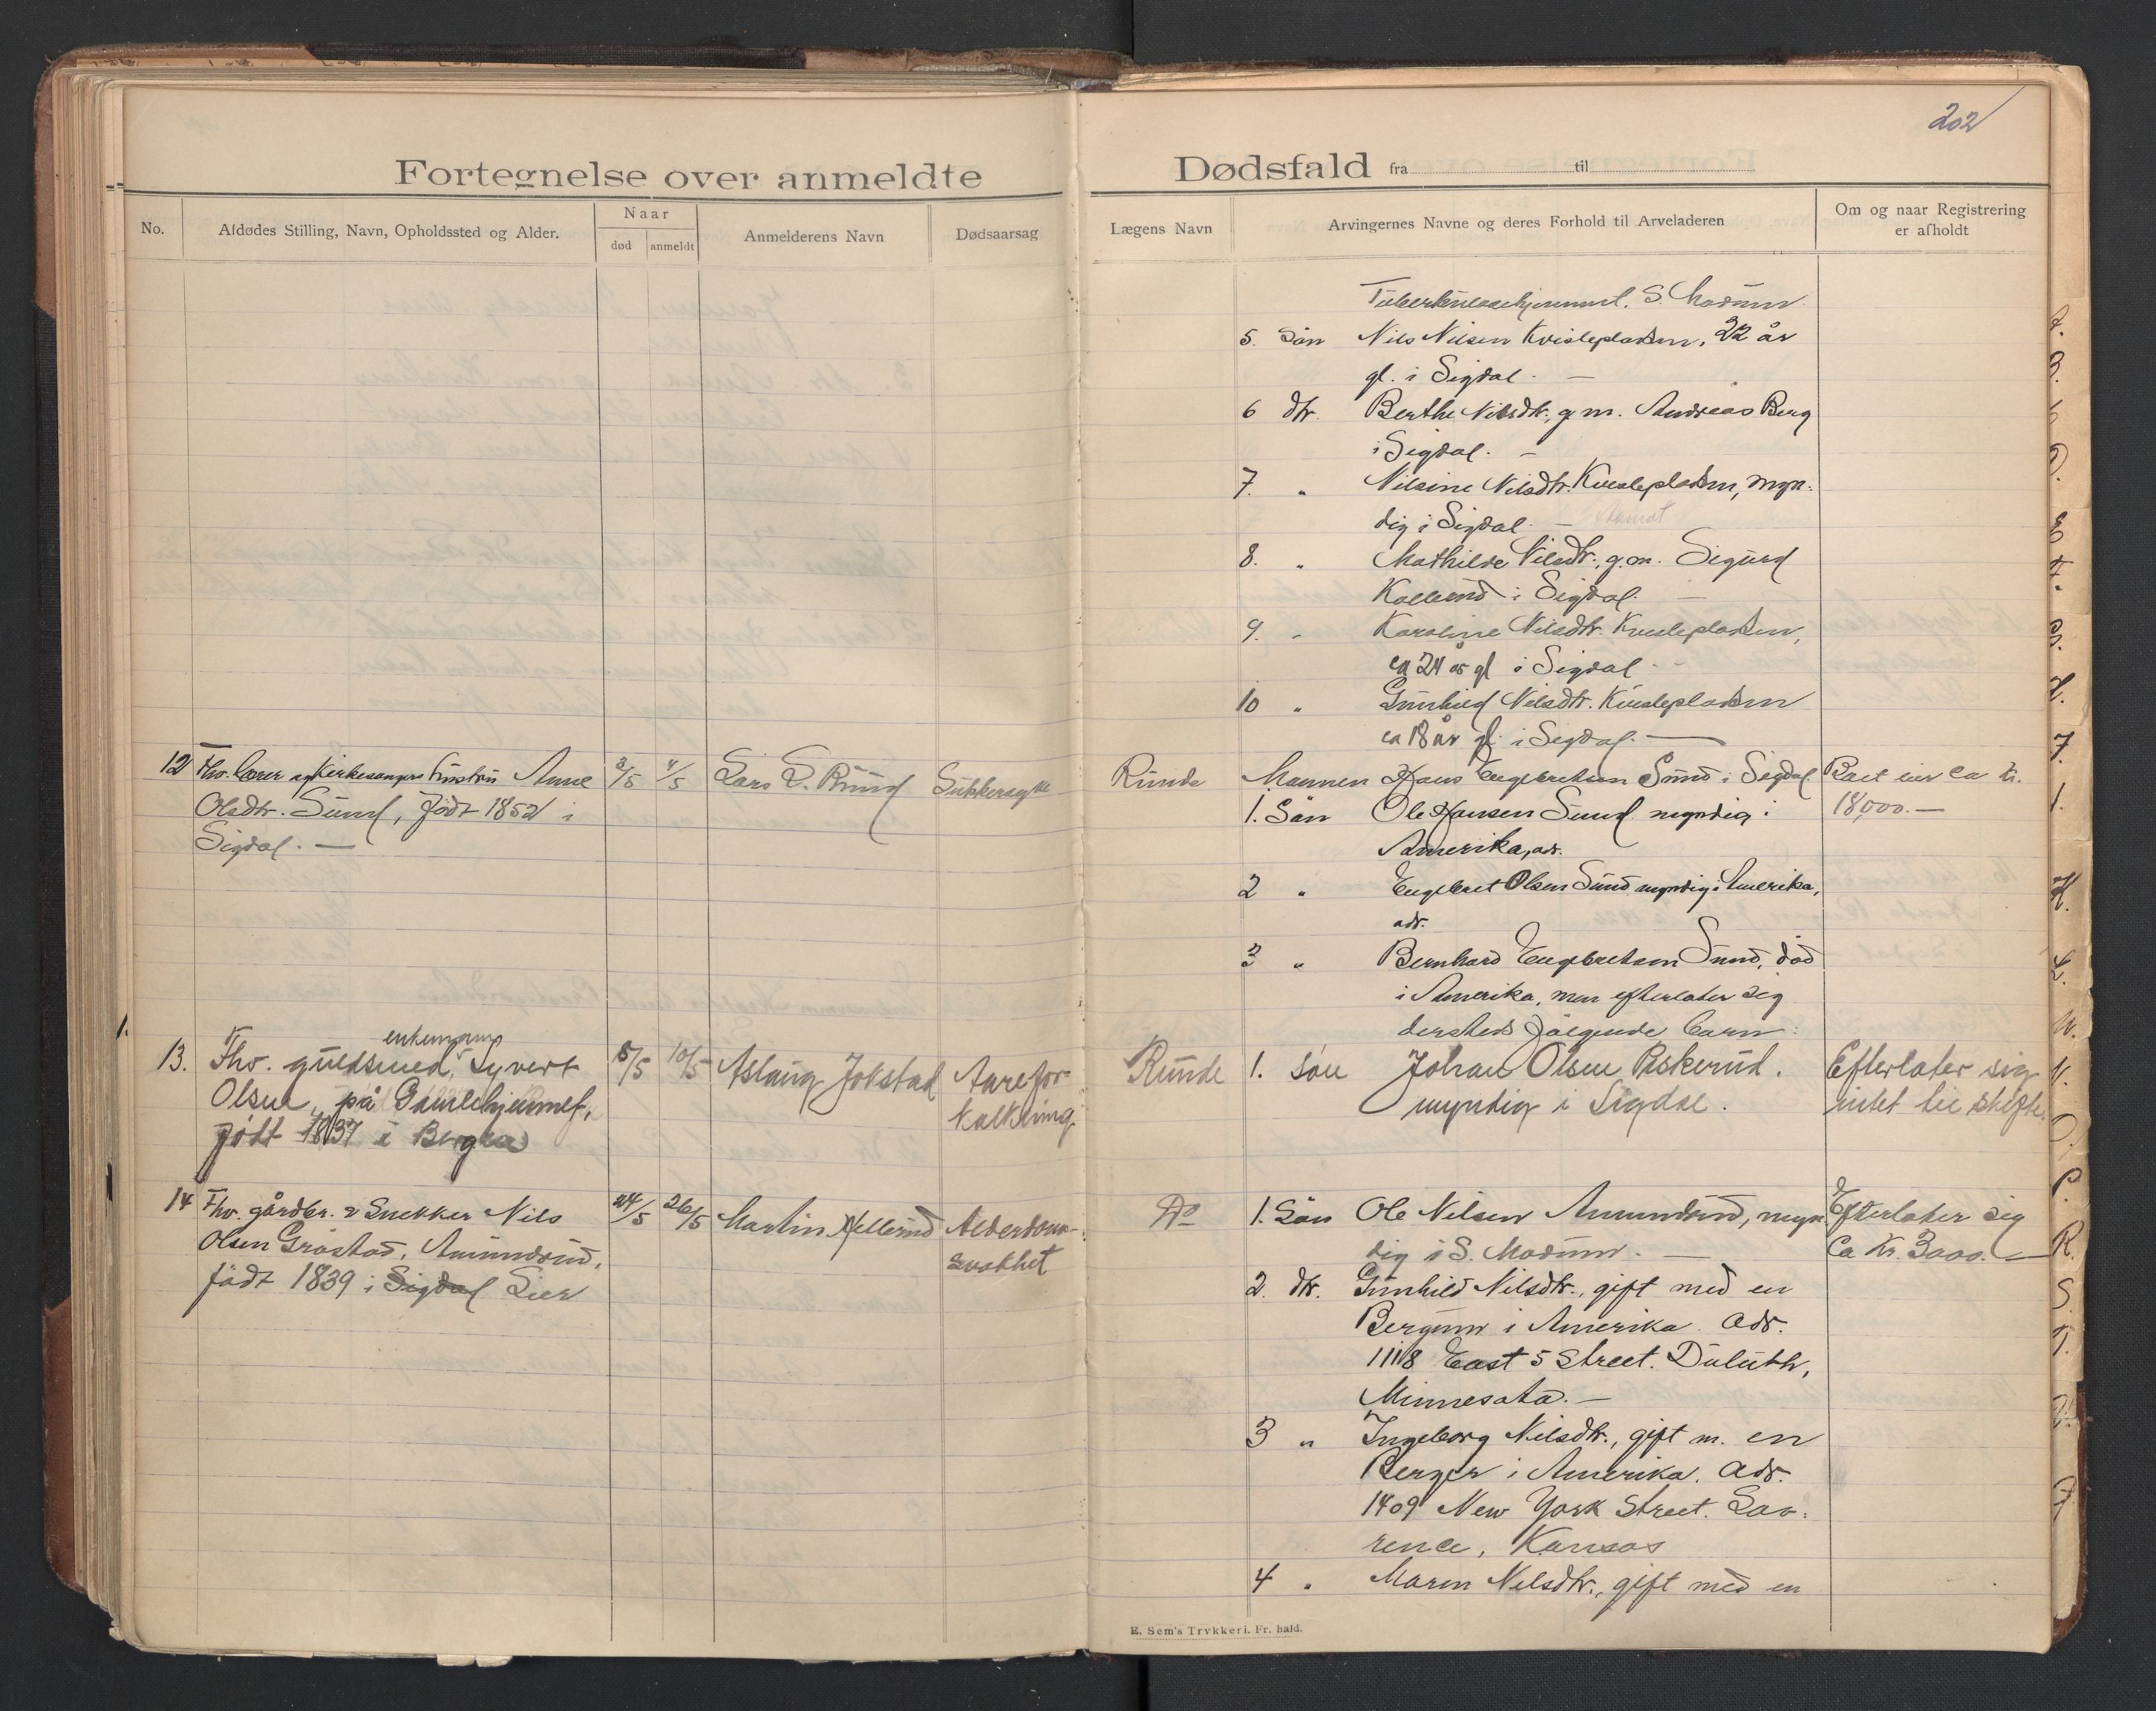 202
Fortegnelse over anmeldte Dødsfald fra til
No. Afdødes Stilling, Navn, Opholdssted og Alder. Naar død anmeldt Anmelderens Navn Dødsaarsag Lægens Navn Arvingernes Navne og deres Forhold til Arveladeren Om og naar Registrering er afholdt
Tuberkulosehjemmet. S. Modum
5. Søn Nils Nilsen Kvisleplassen, 22 år
gl. i Sigdal. —
6 dtr. Berthe Nilsdtr., g. m. Andreas Berg
i Sigdal. —
7. " Nilsine Nilsdtr. Kvisleplassen, myn-
dig i Sigdal. —
8. " Mathilde Nilsdtr., g. m. Sigurd
i Sigdal. —
9. " Karoline Nilsdtr. Kvisleplassen,
ca 24 år gl i Sigdal. -
10 " Gunhild Nilsdtr. Kvisleplassen
ca 18 år gl. i Sigdal. —
12 Fhv. lærer og Kirkesangers hustru Anne
Olsdtr. Sund, født 1852 i
Sigdal. —
3/5 4/5 Lars L. Ruud Sukkersyke Runde
Mannen Hans Engebretsen Sund i Sigdal.
1. Søn Ole Hansen Sund myndig i
Amerika, adr.
2 " Engebret Olsen Sund myndig i Amerika,
adr.
3 " Bernhard Engebretsen Sund, død
i Amerika, men efterlater sig
dersteds følgende barn:
Boet eier ca kr.
18,000.—
13. Fhv. guldsmed, enkemann Syvert
Olsen, på Gamlehjemmet,
født 1837 i Bergen
8/5 10/5 Aslaug Jokstad Aarefor-
kalkning
Runde
1. søn Johan Olsen Piskerud.
myndig i Sigdal.
Efterlater sig
intet til skifte.
14 Fhv. gårdbr. & Snekker Nils
Olsen Grøstad, Amundrud,
født 1839 i Sigdal Lier
24/5 26/5 Martin Hellerud Alderdoms-
svakhet
Do
1. Søn Ole Nilsen Amundrud, myn-
dig i S. Modum. —
2. dtr. Gunhild Nilsdtr., gift med en
Bergum i Amerika. Adr.
1118 East 5 Street. Duluth,
Minnesota. —
3 " Ingeborg Nilsdtr., gift m. en
Berger i Amerika. Adr.
1409 New York Street. Law-
rence, Kansas
4 " Maren Nilsdtr., gift med en
Efterlater sig
ca kr. 3000. —
E. Sem's Trykkeri. Fr.hald.